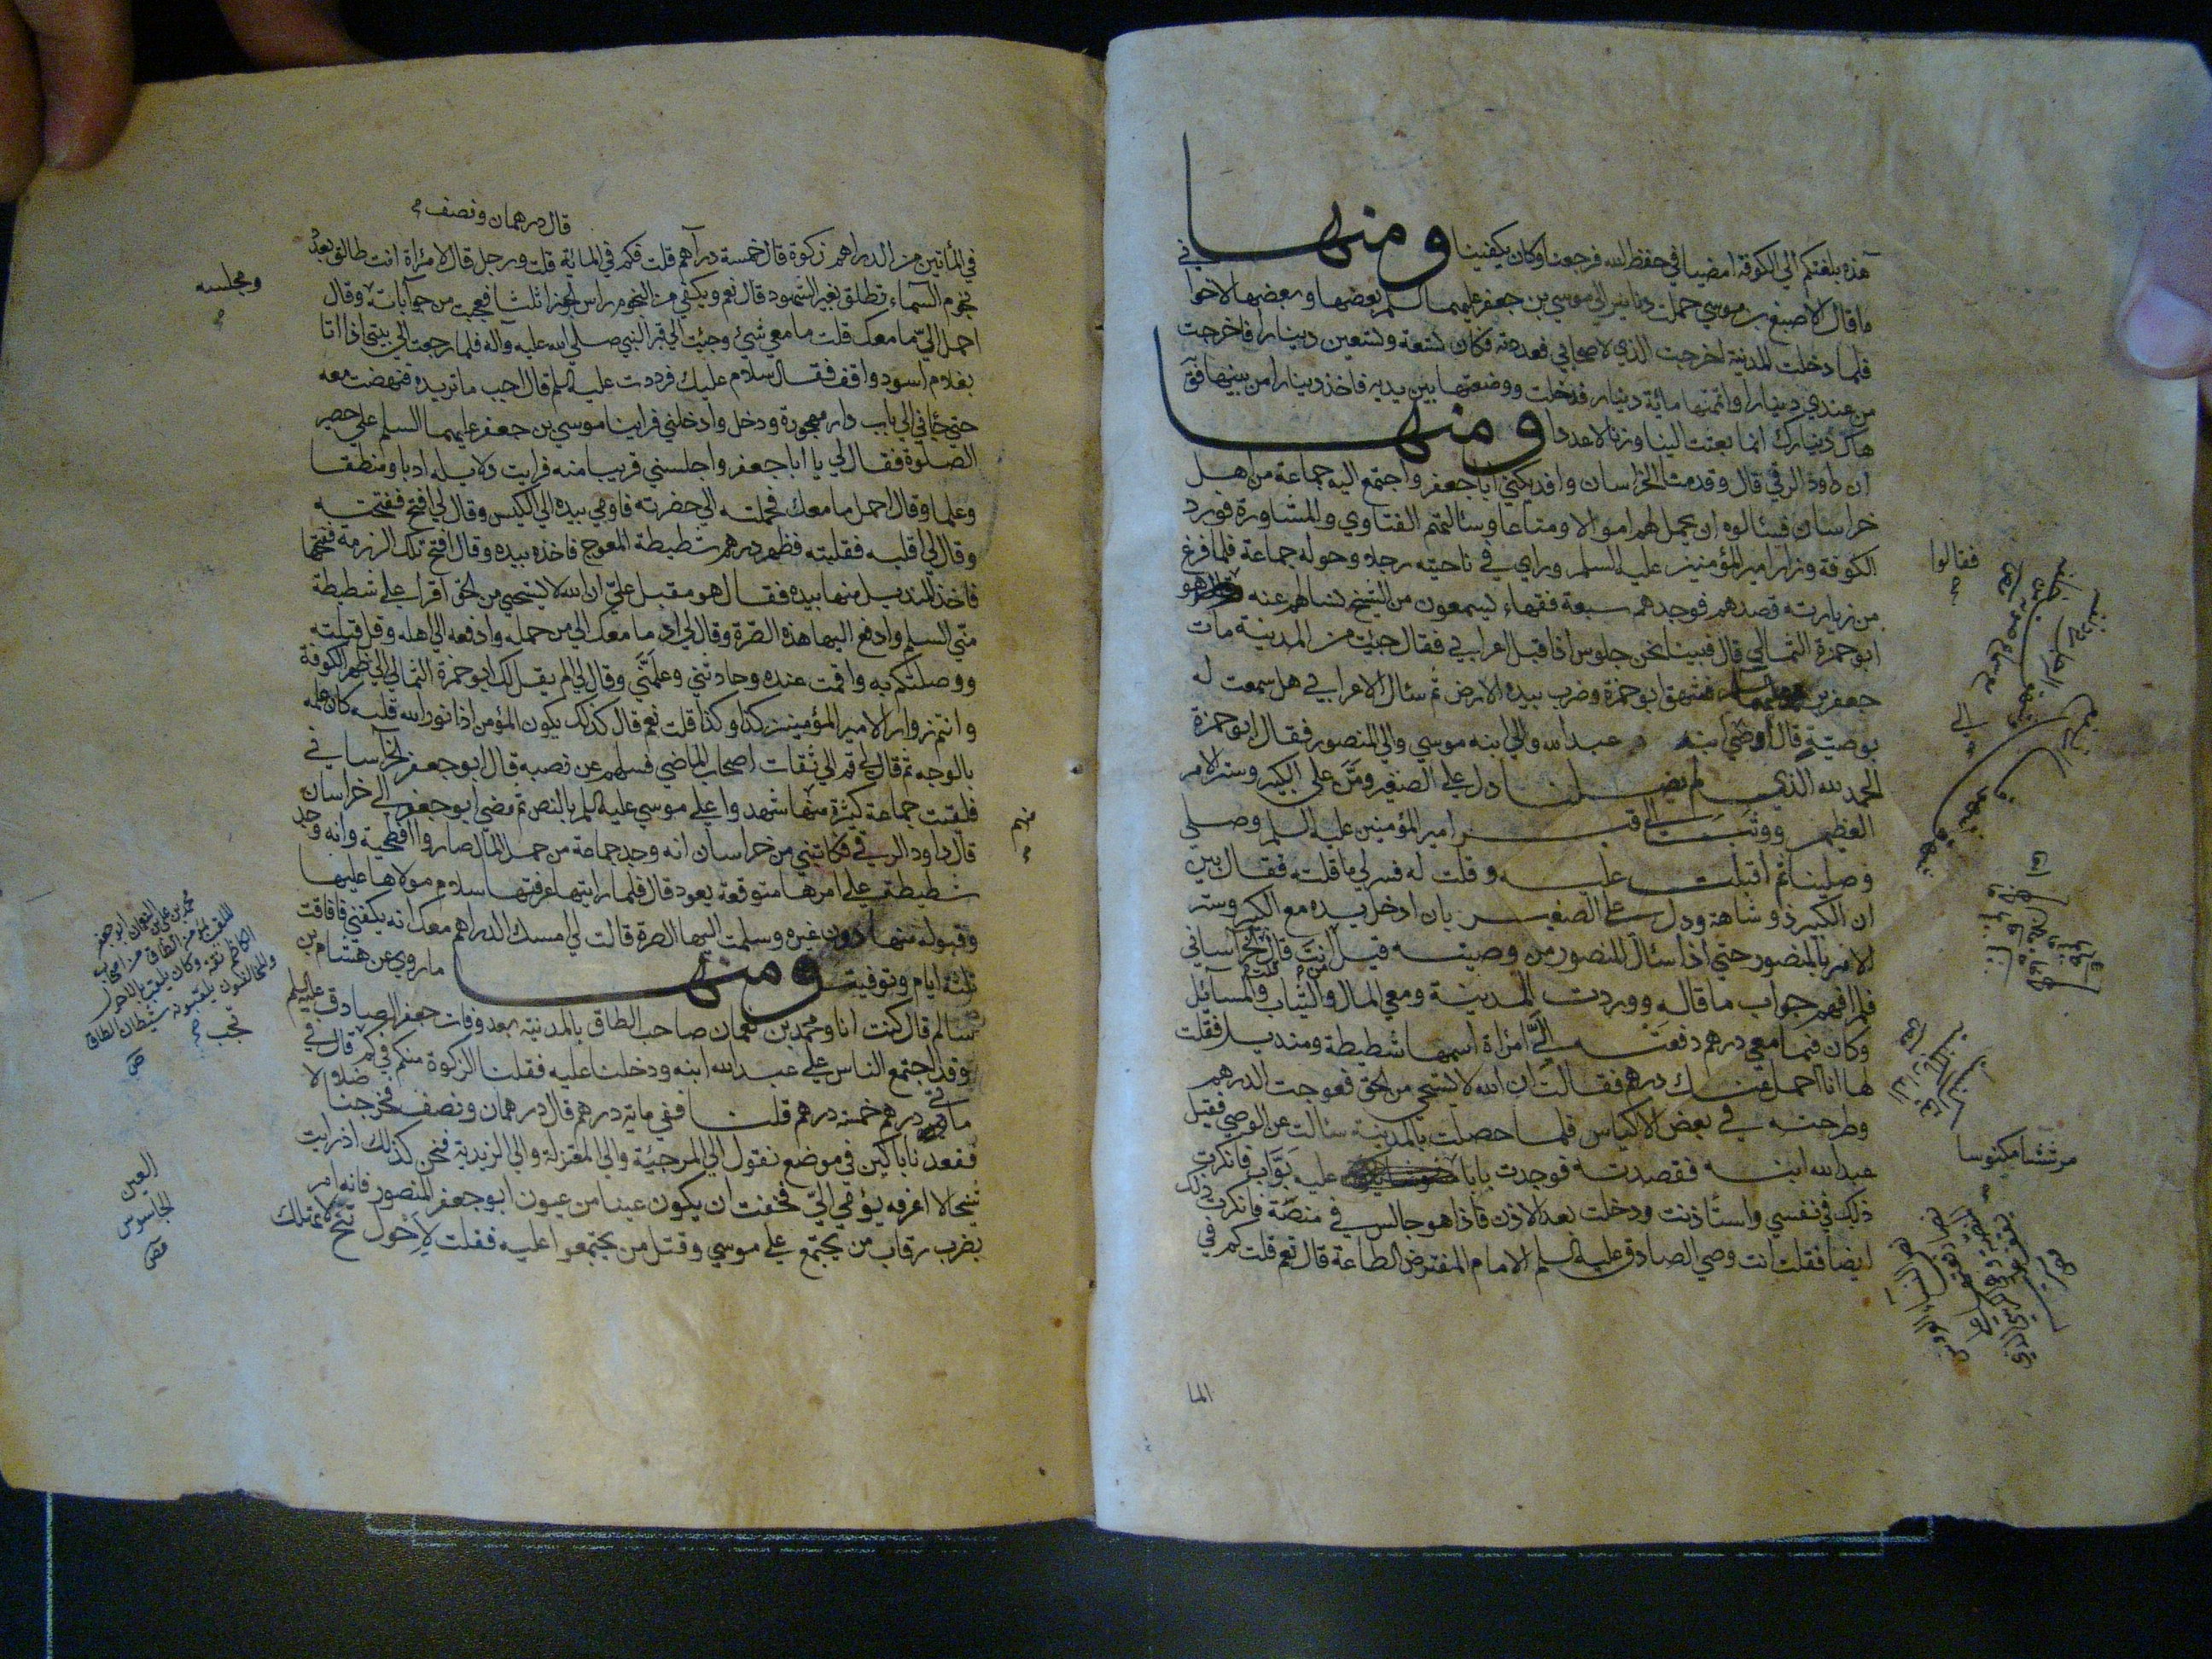 هذه بلغتكم الي الكوفة امضيا في حفظ الله فرجعنا وكان يكفينا ومنها
ما قال الاصبغ بن موسي حملت دنانير الي موسي بن جعفر عليهما السلم بعضها وبعضها لاخواني
فلما دخلت المدينة اخرجت الذي لاصحابي فعددته فكان تسعة وتسعين دينارا فاخرجت
من عندي دينارا واتممتها مائة دينار فدخلت ووضعتها بين يديه فاخذ دينارا من بينها فق
هاك دينارك انما بعثت الينا وزنا لا عددا ومنها
ان داود الرقي قال وقد من الخراسان وافد يكني ابا جعفر واجتمع اليه جماعة من اهل
خراسان فسئالوه ان يحمل لهم اموالا ومتاعا ومسائلهم الفتاوي والمشاورة فورد
الكوفة وزار امير المؤمنين عليه السلم وراي في ناحيته رجلا وحوله جماعة فلما فرغ
من زيارته قصدهم فوجدهم سبعة فقهاء يسمعون من الشيخ فسالهم عنه هو
فقالوا
ابو حمزة الثمالي قال فبينا نحن جلوس اذا اقبل اعرابي فقال جئت من المدينة مات
جعفر بن فشهق ابو حمزة وضرب بيده الارض ثم سئال الاعرابي هل سمعت له
بوصيّة قال اوصي ابنه عبد الله والي ابنه موسي والي المنصور فقال ابو حمزة
الحمد لله الذي لم يضلنا دل علي الصغير ومنّ علي الكبير وستر الامر
العظيم ووثب الي قبر امير المؤمنين عليه السلم وصلي
وصلينا ثم اقبلت عليه وقلت له فسر لي ما قلته فقال بين
ان الكبير ذو شاهة ودل علي الصغير بان ادخل يده مع الكبير وستر
الامر بالمنصور حتي اذا سئال المنصور من وصيه قيل انت قال الخراساني
فلم افهم جواب ما قاله ووردت المدينة ومعي المال والثياب والمسائل
وكان فيما معي درهم دفعته اليّ امراة اسمها شطيطة ومنديل فقلت
لها انا احمل عنك درهم فقالت ان الله لا يستحي من الحق فعوجت الدرهم
وطرحته في بعض الاكياس فلما حصلت بالمدينة سئالت عن الوصي فقيل
عبد الله ابنه فقصدته فوجدت بابا عليه بوّاب فانكرت
مرششا مكنوسا
ذلك في نفسي واستاذنت ودخلت بعد الاذن فاذا هو جالس في منصّة فانكرت ذلك
ايضا فقلت انت وصي الصادق عليه السلم الامام المفترض الطاعة قال نعم قلت كم في
الما
قال درهمان ونصف
في المأتين من الدراهم زكوة قال خمسة دراهم قلت فكم في المائة قلت ورجل قال لامراة انت طالق بعدد
نجوم السماء تطلق بغير الشهود قال نعم ويكفي من النجوم راس الجوزا ثلثا فعجبت من جواباته وقال
ومجلسه
احمل اليّ ما معك قلت ما معي شئ وجئت الي قبر النبي صلي الله عليه وآله فلما رجعت الي بيتي اذا انا
بغلام اسود واقف فقال سلام عليك فرددت عليه السلم قال اجب ما تريده فنهضت معه
حتي جاء بي الي باب دار مهجورة ودخل وادخلني فراينا موسي بن جعفر عليهما السلم علي حصير
الصلوة فقال لي يا ابا جعفر واجلسني قريبا منه فرايت دلايله ادبا ومنطقا
وعلما وقال احمل ما معك فحملته الي حضرته فاومي بيده الي الكيس وقال لي افتح ففتحته
وقال لي اقلبه فقلبته فظهر درهم شطيطة المعوج فاخذه بيده وقال افتح تلك الرزمة ففتحتها
فاخذ المنديل منها بيده فقال هو مقبل عليّ ان الله لا يستحيي من الحق اقرا علي شطيطة
منّي السلم وادفع اليها هذه الصّرة وقال لي اردد ما معك الي من حمله وادفعه الي اهله وقل قبلته
ووصلتكم به واقمت عنده وحادثني وعلّمني وقال لي الم يقل لك ابو حمزة الثمالي الي ظهر الكوفة
وانتم زوار الامير المؤمنين كذا وكذا قلت نعم قال كذلك يكون المؤمن اذا نور الله قلبه كان علمه
بالوجه ثم قال لي قم الي ثقات اصحاب الماضي فسلهم عن نصبه قال ابو جعفر الخراساني
فلقيت جماعة كثيرة منها شهدوا علي موسي عليه السلم بالنص ثم مضي ابو جعفر الي خراسان
منهم
قال داود الرقي فكاتبني من خراسان انه وجد جماعة من حمل المال صاروا افطحية وانه وجد
شطيطة علي امرها متوقعة يعود قال فلما رايتها عرفتها سلام مولاها عليها
وقبوله منها دون غيره وسلمت اليها الصرة قالت لي امسك الدراهم معك انه يكفني فاقامت
ثلثة ايام وتوفيت ومنها ما روي عن هشام بن
سالم قال كنت انا ومحمد بن نعمان صاحب الطاق بالمدينة بعد وفات جعفر الصادق عليه السلم
وقد اجتمع الناس علي عبد الله ابنه ودخلنا عليه فقلنا الزكوة منكم في كم قال في
مأتي درهم خمسة درهم قلنا ففي ماية درهم قال درهمان ونصف فخرجنا ضلالا
فقعدنا باكين في موضع نقول الي المرجئية والي المعتزلة والي الزيدية فنحن كذلك اذ رايت
شيخا لا اعرفه يؤمي اليّ فخفت ان يكون عينا من عيون ابو جعفر المنصور فانه امر
بضرب رقاب من يجتمع علي موسي وقتل من يجتمعوا عليه فقلت لاحول تنحّ لا تهلك
محمد بن علي بن النعمان ابو جعفر
الملقب بمؤمن الطاق من اصحاب
الكاظم ثقة وكان يلقب بالاحول
والمخالفون يلقبونه شيطان الطاق
العين
الجاسوس